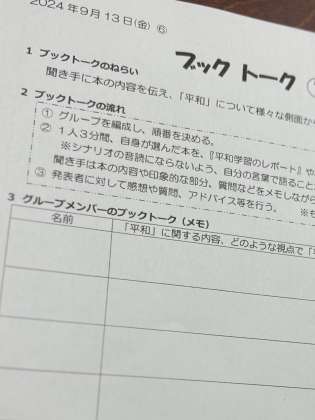 2024年9月13日(金) ⑥
ブックトーク
1 ブックトークのねらい
聞き手に本の内容を伝え、「平和」について様々な側面から
2 ブックトークの流れ
① グループを編成し、順番を決める。
② 1人3分間、自身が選んだ本を、『平和学習のレポート』や
※シナリオの音読にならないよう、自分の言葉で語ること
聞き手は本の内容や印象的な部分、質問などをメモしながら
③ 発表者に対して感想や質問、アドバイス等を行う。 ※
3 グループメンバーのブックトーク（メモ）
名前
「平和」に関する内容、どのような視点で「